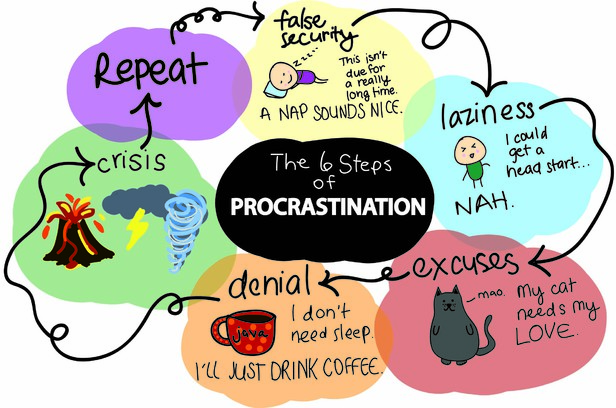 The 6 Steps
of
PROCRASTINATION
false
security
This isn't
due for
a really
long time.
A NAP SOUNDS NICE.
laziness
I could
get a
head start...
NAH.
excuses
mao.
My cat
needs my
LOVE.
denial
java
I don't
need sleep.
I'LL JUST DRINK COFFEE.
crisis
Repeat